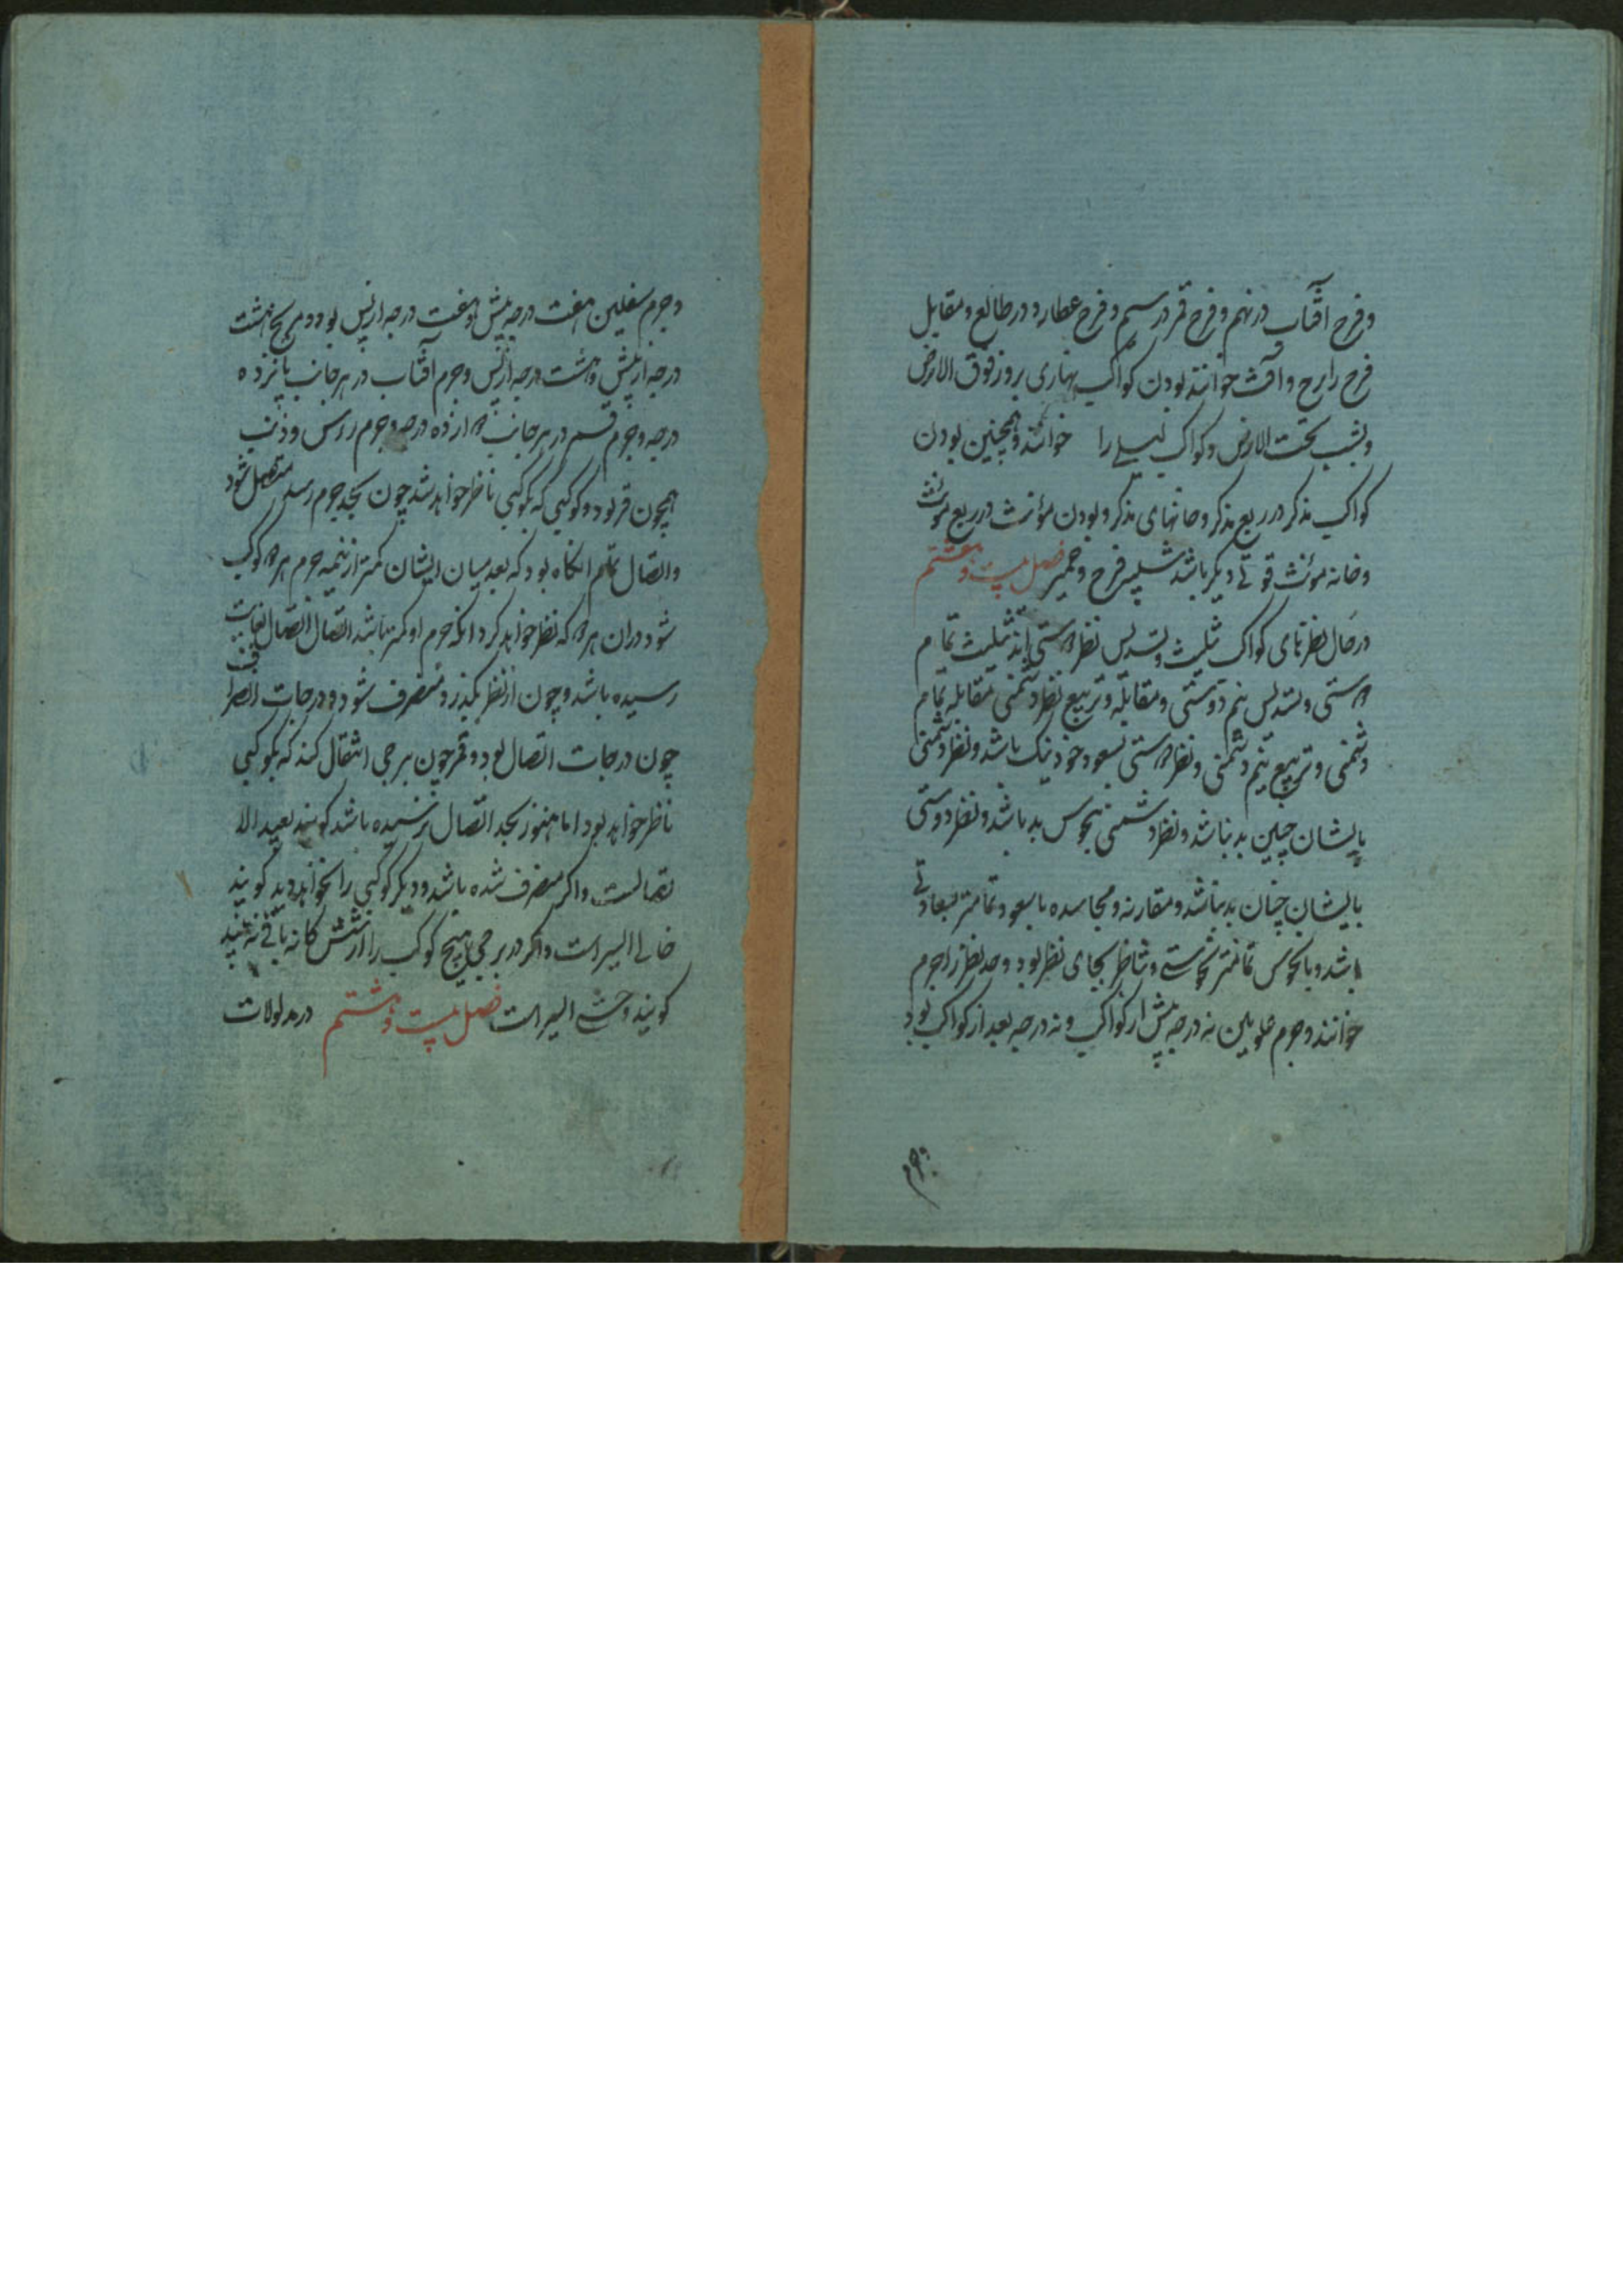 و فرح آفتاب در نهم و فرح قمر در سیم و فرح عطارد در طالع و مقابل
فرح را رح و آفت خوانند بودن کواکب نهاری بروز فوق الارض
و بشب تحت الارض و کواکب لیلی را خوانند و همچنین بودن
کواکب مذکر در ربع مذکر و خانهای مذکر و بودن مؤنث در ربع مؤنث
و خانه مؤنث قوتی دیگر باشد فرح و حیز فصل بیست و هفتم
در حال نظرهای کواکب تثلیث و تسدیس نظر دوستی اند تثلیث تمام
دوستی و تسدیس نیم دوستی و مقابله و تربیع نظر دشمنی مقابله تمام
دشمنی و تربیع نیم دشمنی و نظر دوستی بسعود خود نیک باشد و نظر دشمنی
بایشان چنین بد نباشد و نظر دشمنی بنحوس بد باشد و نظر دوستی
بایشان چنان بد نباشد و مقارنه و مجاسده با سعود تمامتر سعادتی
باشد و با نحوس تمامتر نحوستی و تناظر بجای نظر بود و حد نظر را جرم
خوانند و جرم علویین نه درجه پیش از کواکب و نه درجه بعد از کواکب بود
و جرم
و جرم سفلیین هفت درجه پیش و هفت درجه از پس بود و مریخ هشت
درجه از پیش و هشت درجه از پس و جرم آفتاب در هر جانب پانزده
درجه و جرم قمر در هر جانب دوازده درجه و جرم راس و ذنب
همچون قمر بود و کوکبی که بکوکبی ناظر خواهد شد چون بحد جرم رسد متصل شود
و اتصال تمام انگاه بود که بعد میان ایشان کمتر از نیمه جرم هر دو کوکب
شود و ران هر دو که نظر خواهد کرد انکه جرم او کمتر باشد اتصال اتصال بغایت
رسیده باشد و چون از نظر بگذرد منصرف شود و درجات انصراف
چون درجات اتصال بود و قمر چون ببرجی انتقال کند که بکوکبی
ناظر خواهد بود اما هنوز بحد اتصال نرسیده باشد گویند بعید الا
تصالست و اگر منصرف شده باشد و دیگر کوکبی را نخواهد دید گویند
خالی السیر است و اگر در برجی هیچ کوکب را از شش گانه باقی نه بیند
گویند وحشی السیر است فصل بیست و هشتم در مدلولات